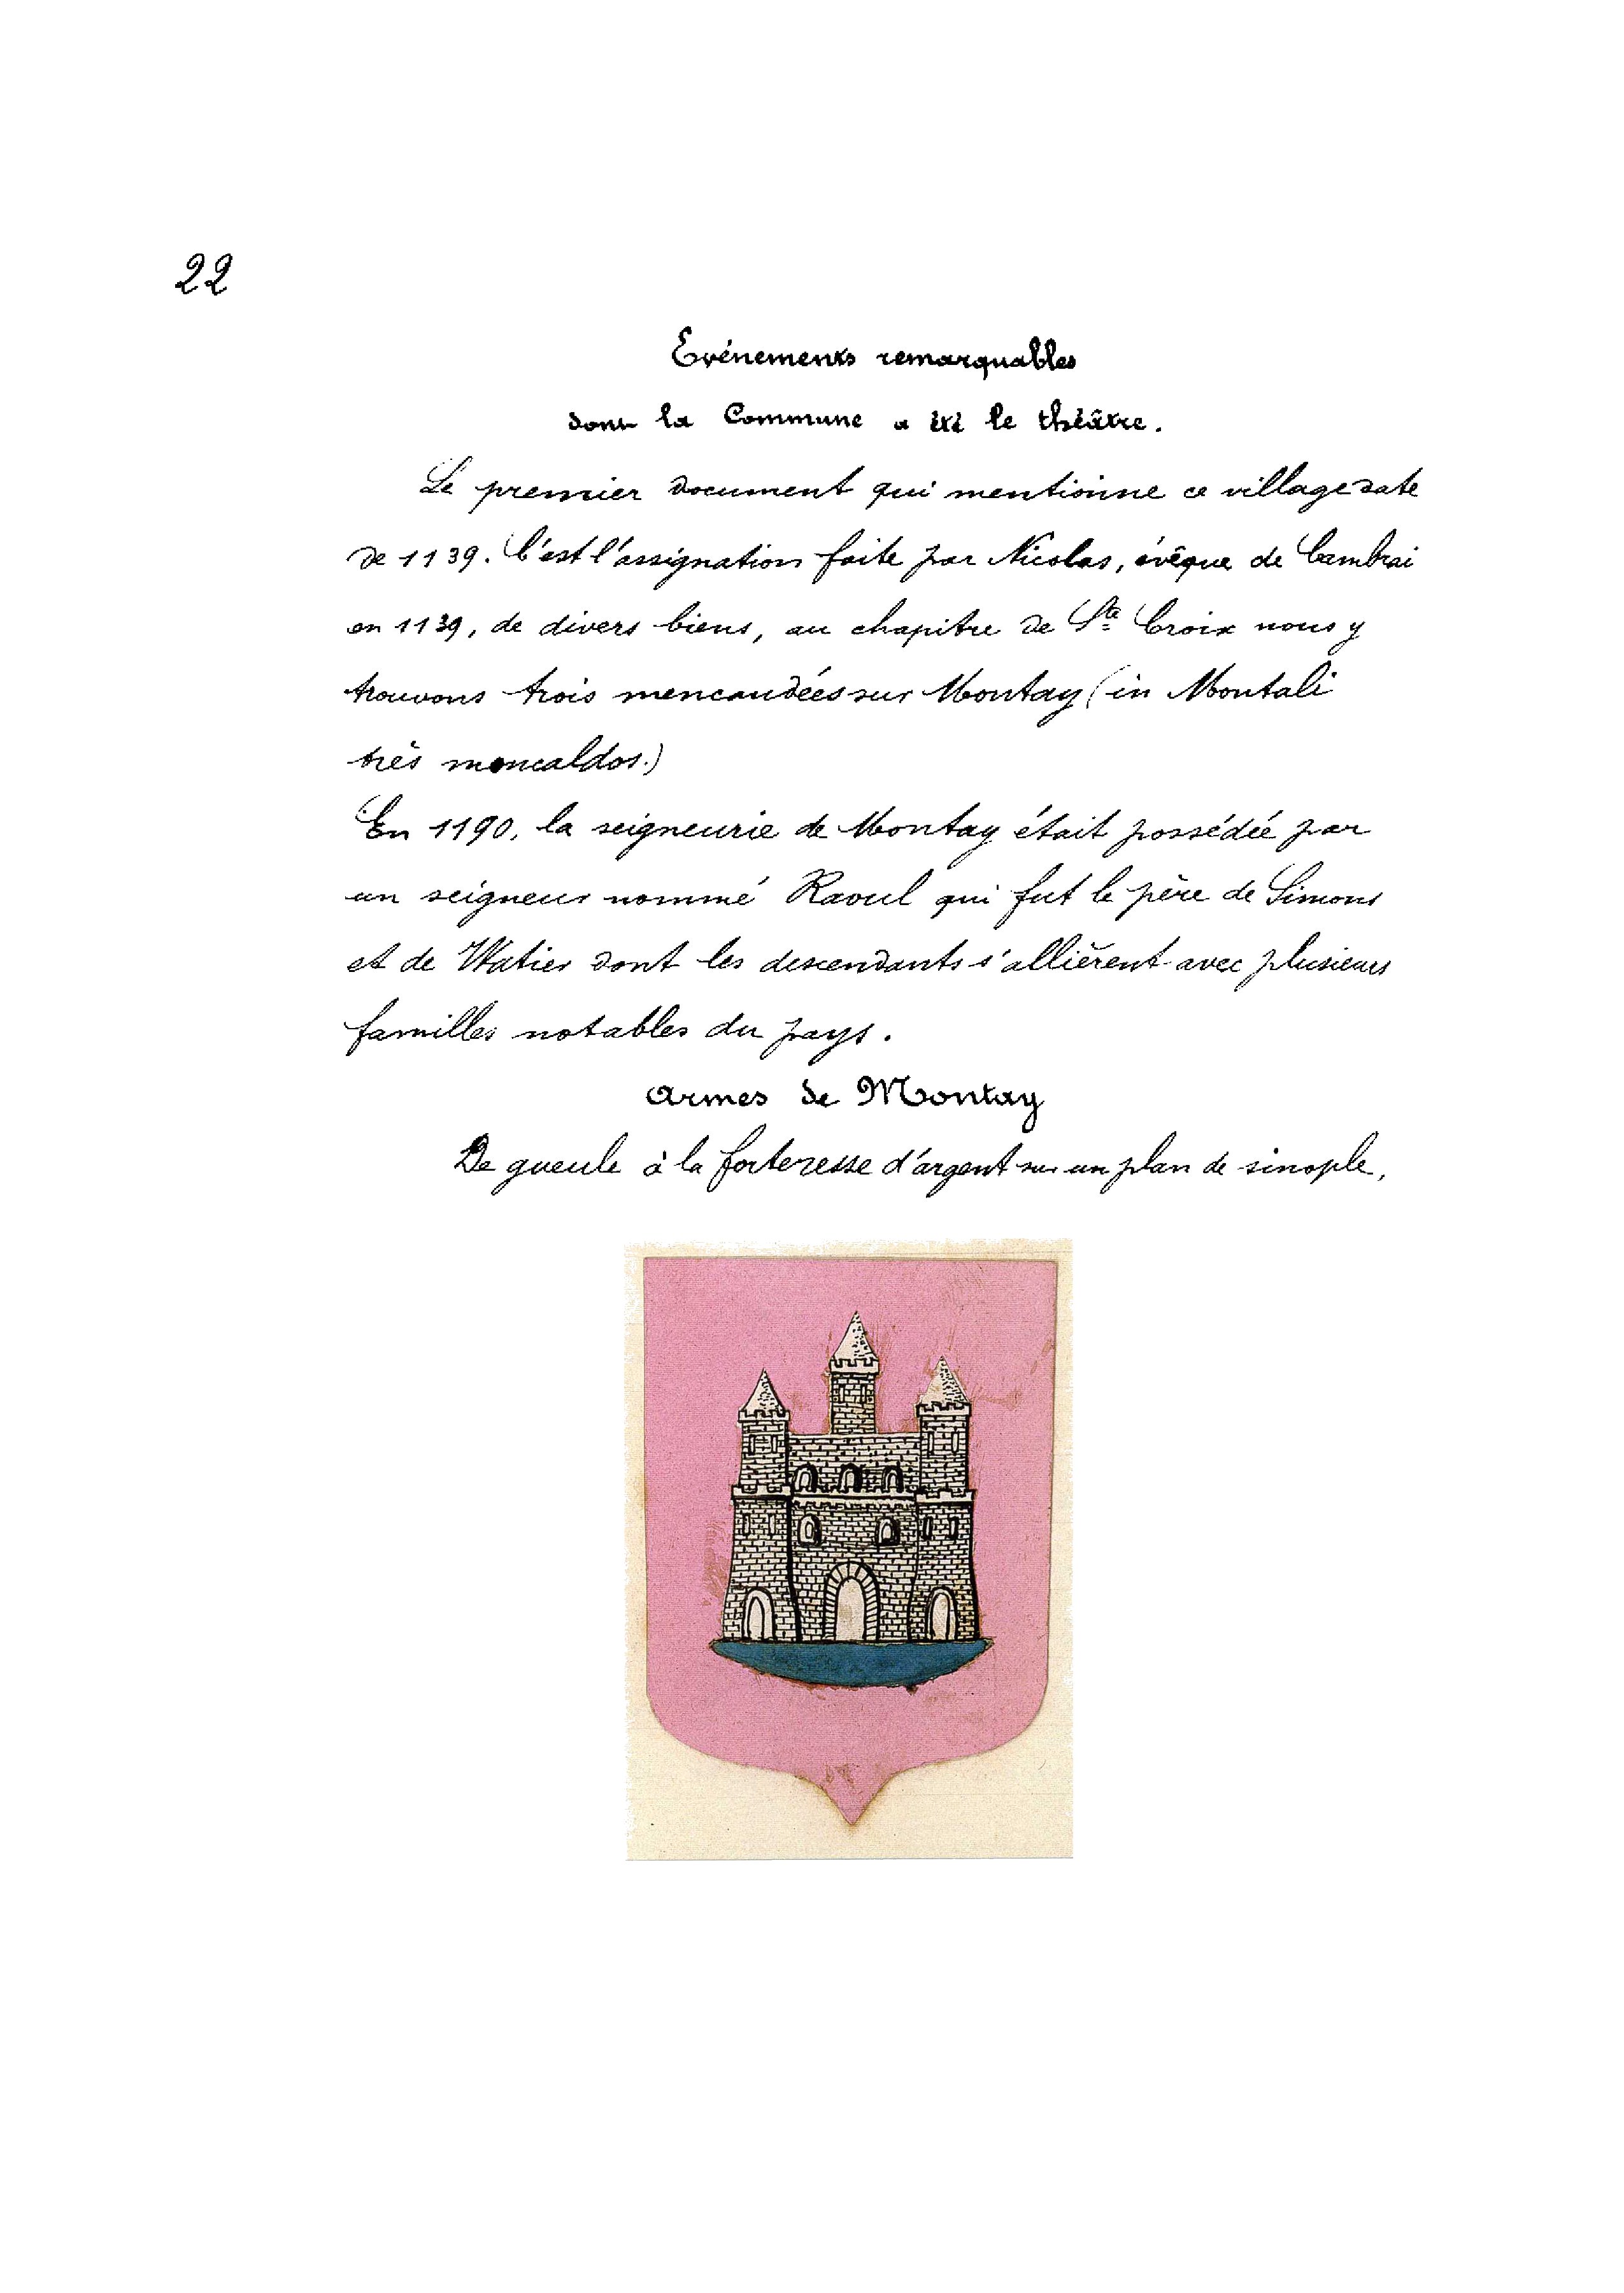 22
Evénements remarquables
dont la Commune a été le théâtre.
Le premier document qui mentionne ce village date
de 1139. C'est l'assignation faite par Nicolas, évêque de Cambrai
en 1139, de divers biens, au chapitre de Ste Croix nous y
trouvons trois mencaudées sur Montay (in Montali
très moncaldos.)
En 1190, la seigneurie de Montay était possédée par
un seigneur nommé Raoul qui fut le père de Simons
et de Watier dont les descendants s'allièrent avec plusieurs
familles notables du pays.
Armes de Montay
De gueule à la forteresse d'argent sur un plan de sinople,